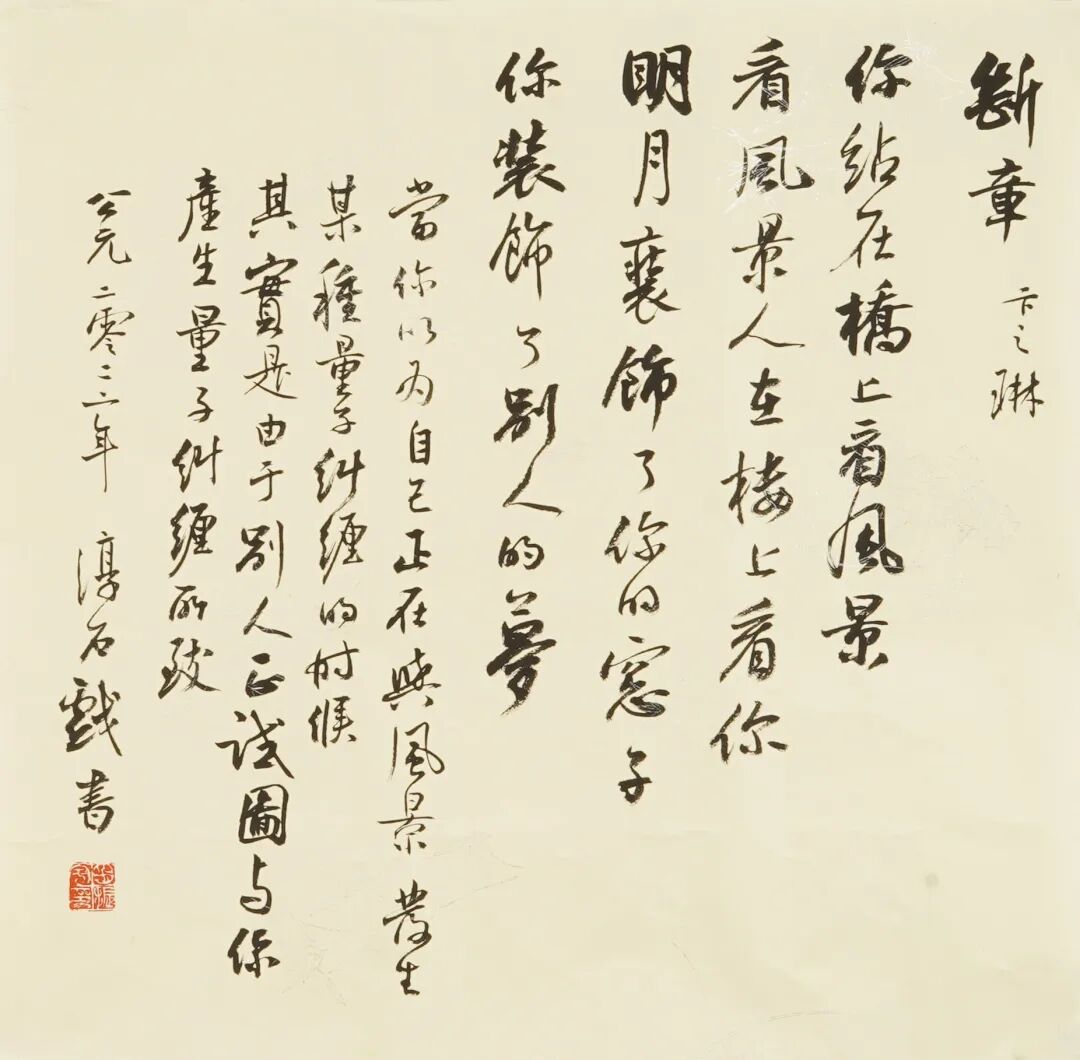 斷章 卞之琳
你站在橋上看风景
看風景人在楼上看你
明月裝飾了你的窓子
你裝飾了别人的夢
當你以为自己正在與風景發生
某種量子糾纏的时候
其實是由于别人正試圖与你
產生量子糾纏所致
公元二零二二年 淳石戲書